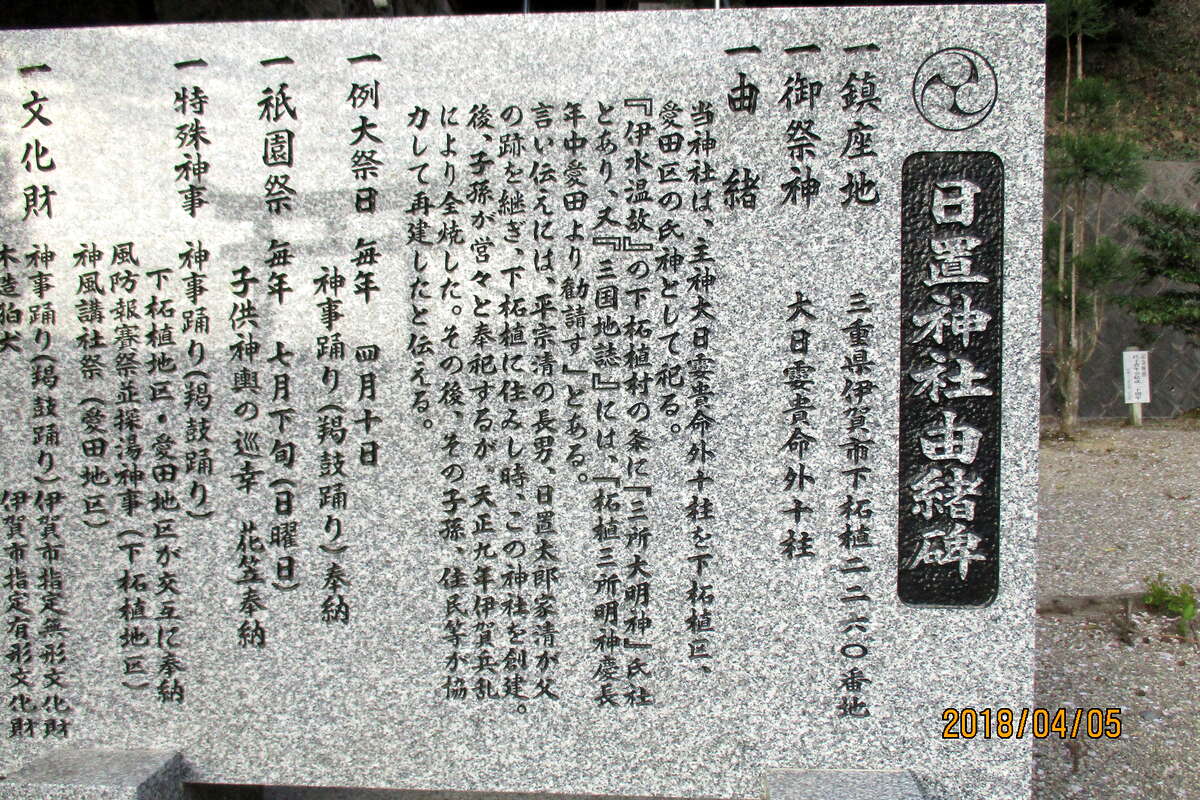 日置神社由緒碑
一鎮座地 三重県伊賀市下柘植二二六〇番地
一御祭神 大日孁貴命外十柱
一由緒
当神社は、主神大日孁貴命外十柱を下柘植区、
愛田区の氏神として祀る。
『伊水温故』の下柘植村の条に『三所大明神』氏社
とあり、又『三国地誌』には、『柘植三所明神慶長
年中愛田より勧請す』とある。
言い伝えには、平宗清の長男、日置太郎家清が父
の跡を継ぎ、下柘植に住みし時、この神社を創建。
後、子孫が営々と奉祀するが、天正九年伊賀兵乱
により全焼した。その後、その子孫、住民等が協
力して再建したと伝える。
一例大祭日 毎年 四月十日
神事踊り(羯鼓踊り)奉納
一祇園祭 毎年 七月下旬(日曜日)
子供神輿の巡幸 花笠奉納
一特殊神事 神事踊り(羯鼓踊り)
下柘植地区・愛田地区が交互に奉納
風防報賽祭並探湯神事(下柘植地区)
神風講社祭(愛田地区)
一文化財 神事踊り(羯鼓踊り)伊賀市指定無形文化財
木造狛犬 伊賀市指定有形文化財
2018/04/05